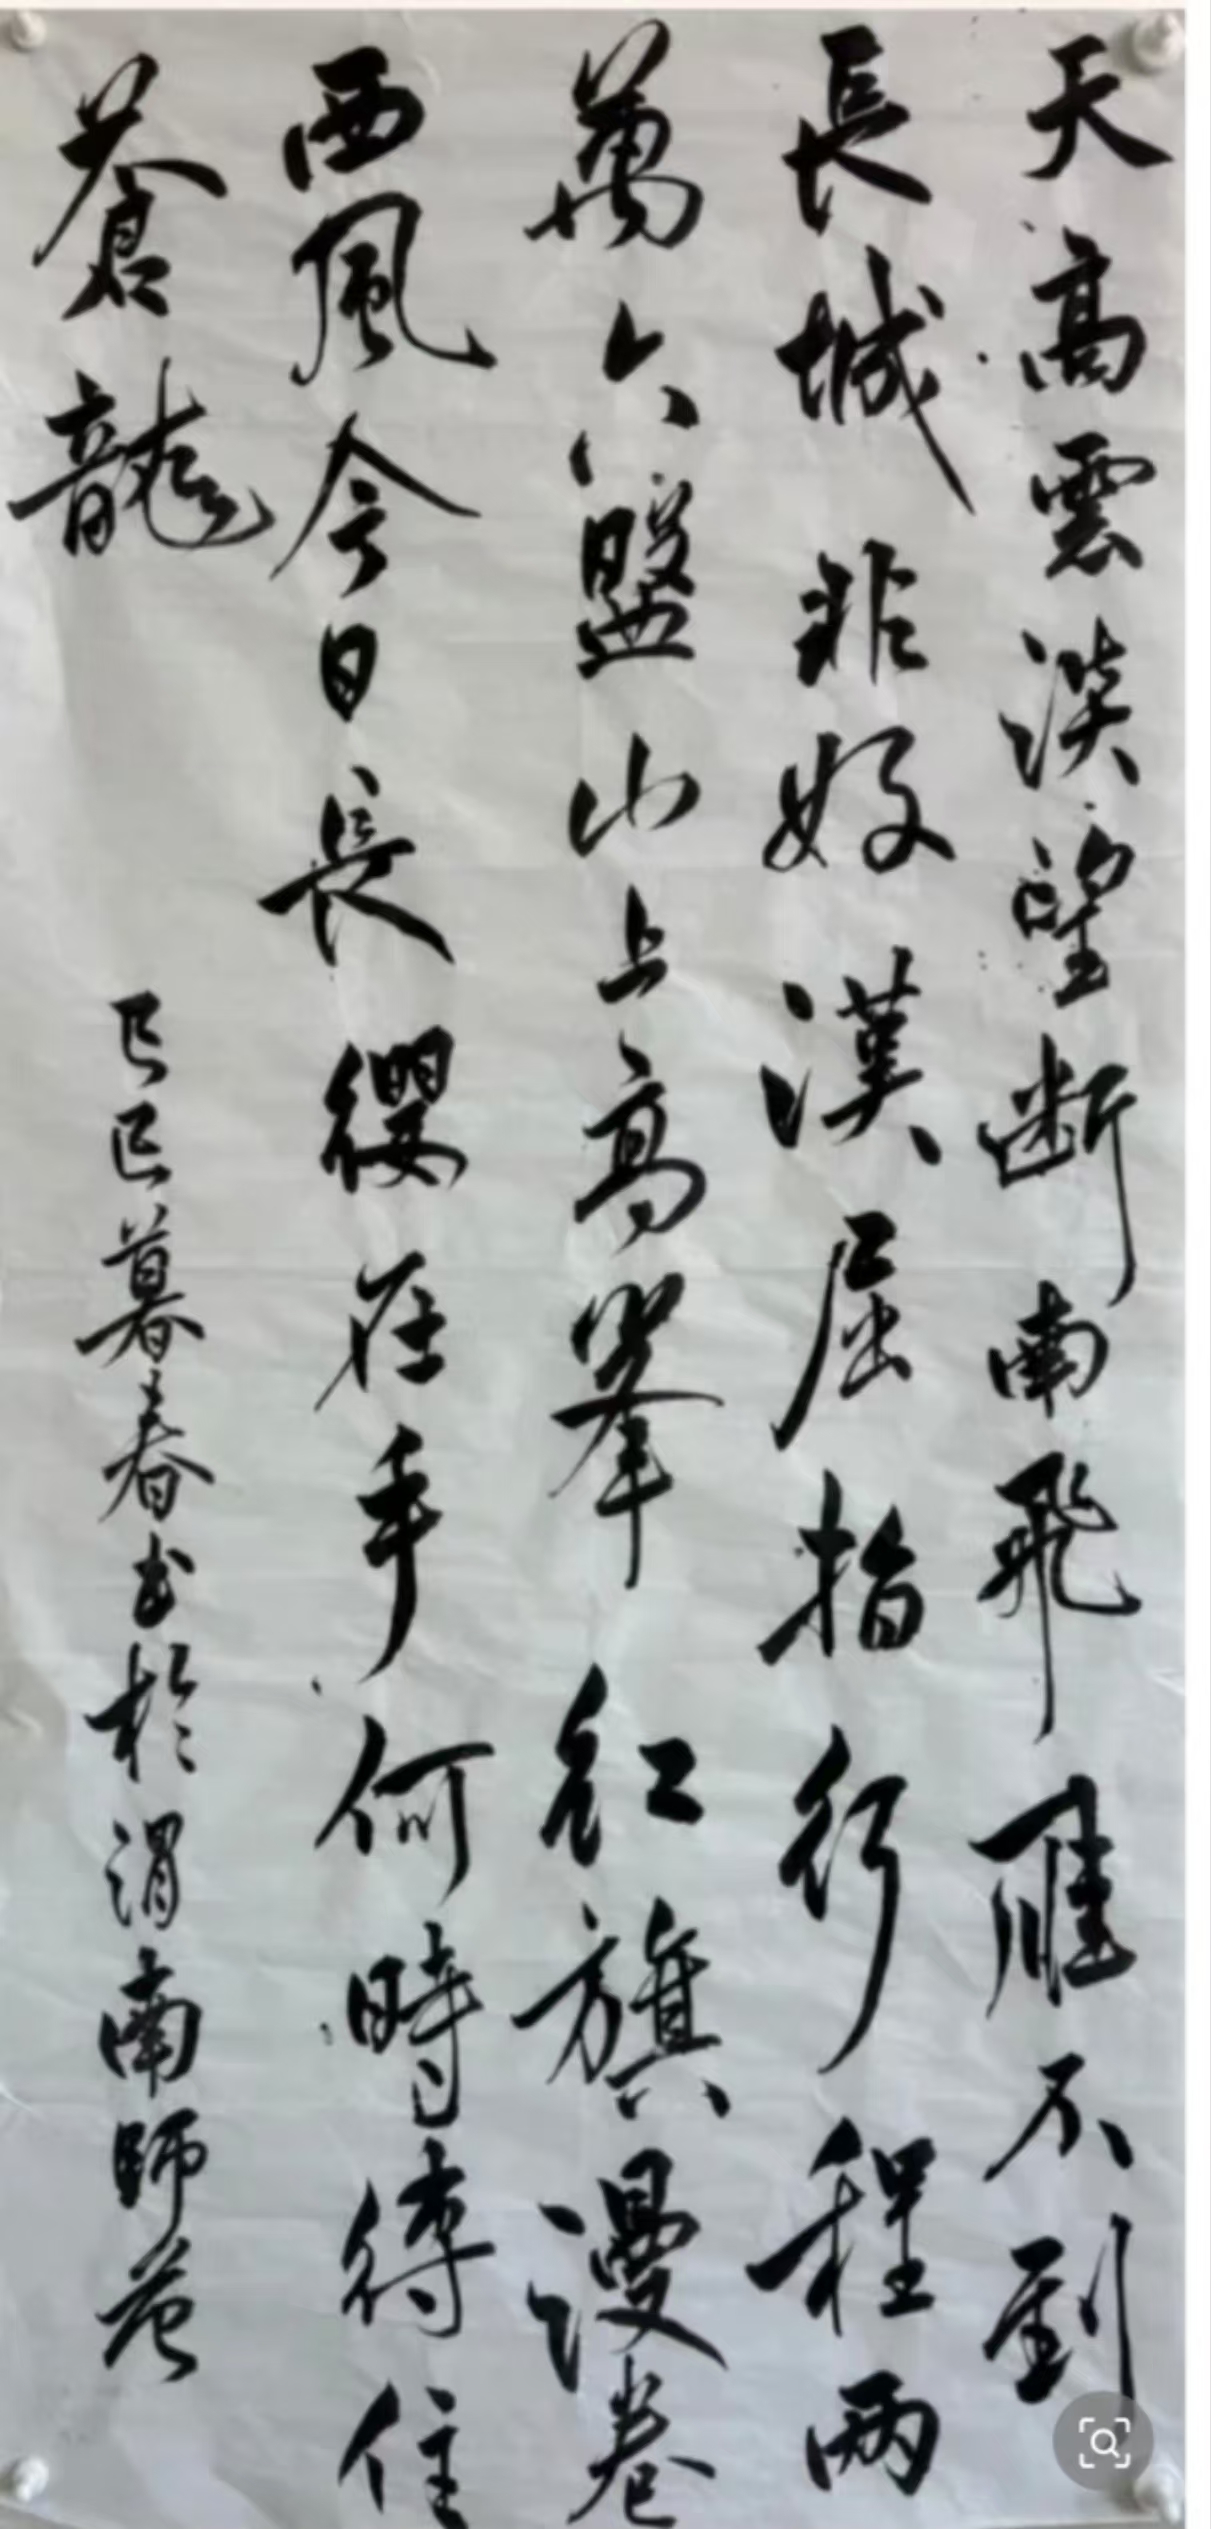 天高雲淡望断南飛雁不到
長城非好漢屈指行程两
萬六盤山上高峯紅旗漫卷
西風今日長纓在手何時縛住
蒼龍
乙巳暮春书於渭南師范